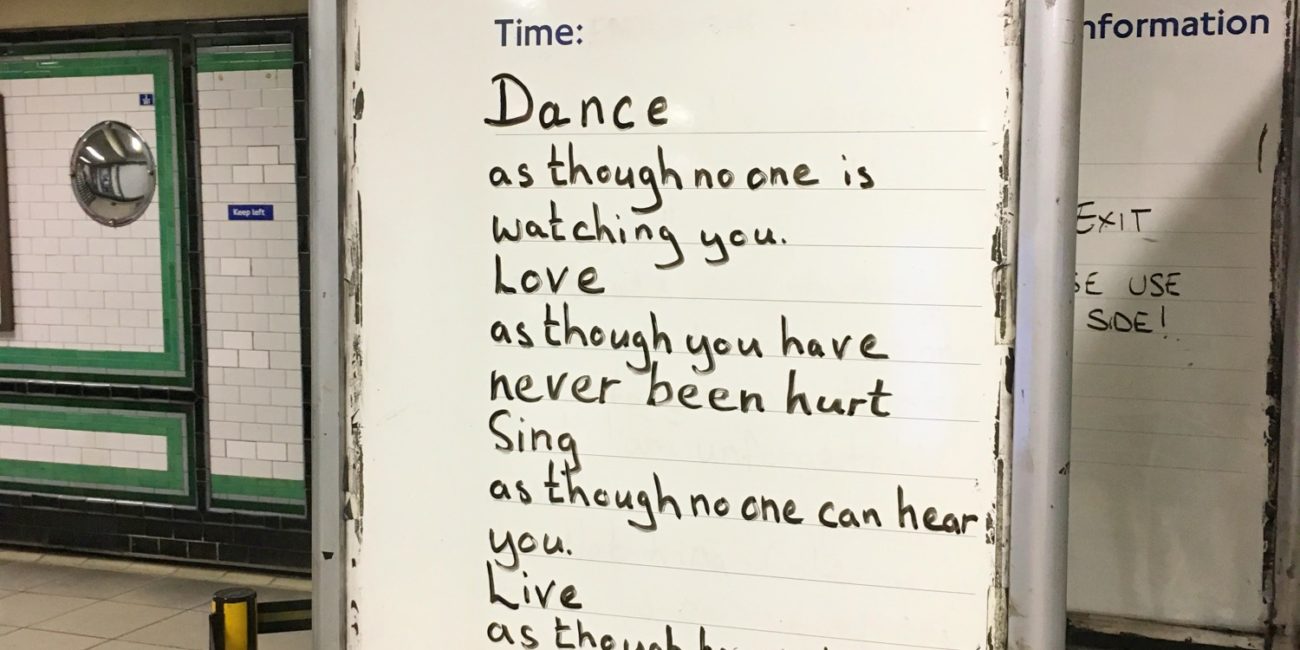 Time:
Dance
as though no one is
watching you.
Love
as though you have
never been hurt
Sing
as though no one can hear
you.
Live
as though
Keep left
nformation
EXIT
SE USE
SIDE!